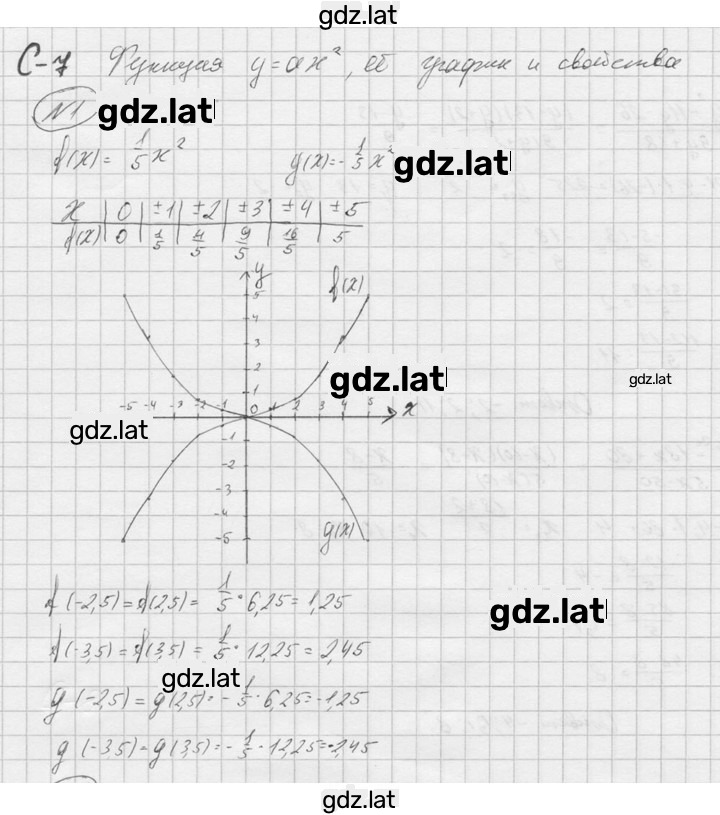 gdz.lat
С-7 Функция y=ax², её график и свойства
№1 gdz.lat
f(x)= 1/5 x² g(x)=-1/5 x² gdz.lat
x | 0 | ±1 | ±2 | ±3 | ±4 | ±5
f(x) | 0 | 1/5 | 4/5 | 9/5 | 16/5 | 5
y f(x)
5
4
3
2
gdz.lat
1 gdz.lat
-5 -4 -3 -2 -1 0 1 2 3 4 5 x
gdz.lat
-1
-2
-3
-4
g(x)
-5
f(-2,5)=f(2,5)= 1/5 · 6,25=1,25
gdz.lat
f(-3,5)=f(3,5)= 1/5 · 12,25=2,45
gdz.lat
g(-2,5)=g(2,5)=-1/5 · 6,25=-1,25
g(-3,5)=g(3,5)=-1/5 · 12,25=-2,45
gdz.lat